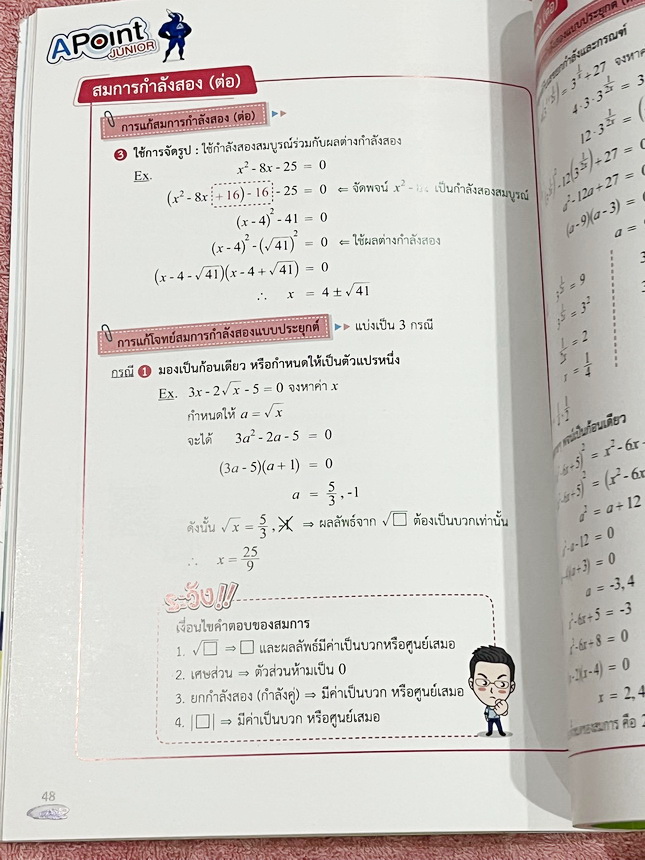 APoint
JUNIOR
สมการกำลังสอง (ต่อ)
การแก้สมการกำลังสอง (ต่อ)
3 ใช้การจัดรูป : ใช้กำลังสองสมบูรณ์ร่วมกับผลต่างกำลังสอง
Ex. x² - 8x - 25 = 0
(x² - 8x + 16) - 16 - 25 = 0 ⇐ จัดพจน์ x² - 8x เป็นกำลังสองสมบูรณ์
(x - 4)² - 41 = 0
(x - 4)² - (√41)² = 0 ⇐ ใช้ผลต่างกำลังสอง
(x - 4 - √41)(x - 4 + √41) = 0
∴ x = 4 ± √41
การแก้โจทย์สมการกำลังสองแบบประยุกต์ ▶▶ แบ่งเป็น 3 กรณี
กรณี 1 มองเป็นก้อนเดียว หรือกำหนดให้เป็นตัวแปรหนึ่ง
Ex. 3x - 2√x - 5 = 0 จงหาค่า x
กำหนดให้ a = √x
จะได้ 3a² - 2a - 5 = 0
(3a - 5)(a + 1) = 0
a = 5/3 , -1
ดังนั้น √x = 5/3 , -1 ⇒ ผลลัพธ์จาก √□ ต้องเป็นบวกเท่านั้น
∴ x = 25/9
ระวัง!!
เงื่อนไขคำตอบของสมการ
1. √□ ⇒ □ และผลลัพธ์มีค่าเป็นบวกหรือศูนย์เสมอ
2. เศษส่วน ⇒ ตัวส่วนห้ามเป็น 0
3. ยกกำลังสอง (กำลังคู่) ⇒ มีค่าเป็นบวก หรือศูนย์เสมอ
4. |□| ⇒ มีค่าเป็นบวก หรือศูนย์เสมอ
48
(ต่อ)
= 3^(1/x) + 27 จงหาค่า
4·3·3^(1/2x) = 3
12·3^(1/2x) =
- 12(3^(1/2x)) + 27 = 0
a² - 12a + 27 = 0
(a - 9)(a - 3) = 0
a =
= 9
= 3²
1/2x = 2
x = 1/4
พจน์เป็นก้อนเดียว
= x² - 6x
= (x² - 6x
a² = a + 12
a² - a - 12 = 0
(a + 3) = 0
a = -3, 4
x² - 6x + 5 = -3
x² - 6x + 8 = 0
(x - 2)(x - 4) = 0
x = 2, 4
ของสมการ คือ 2